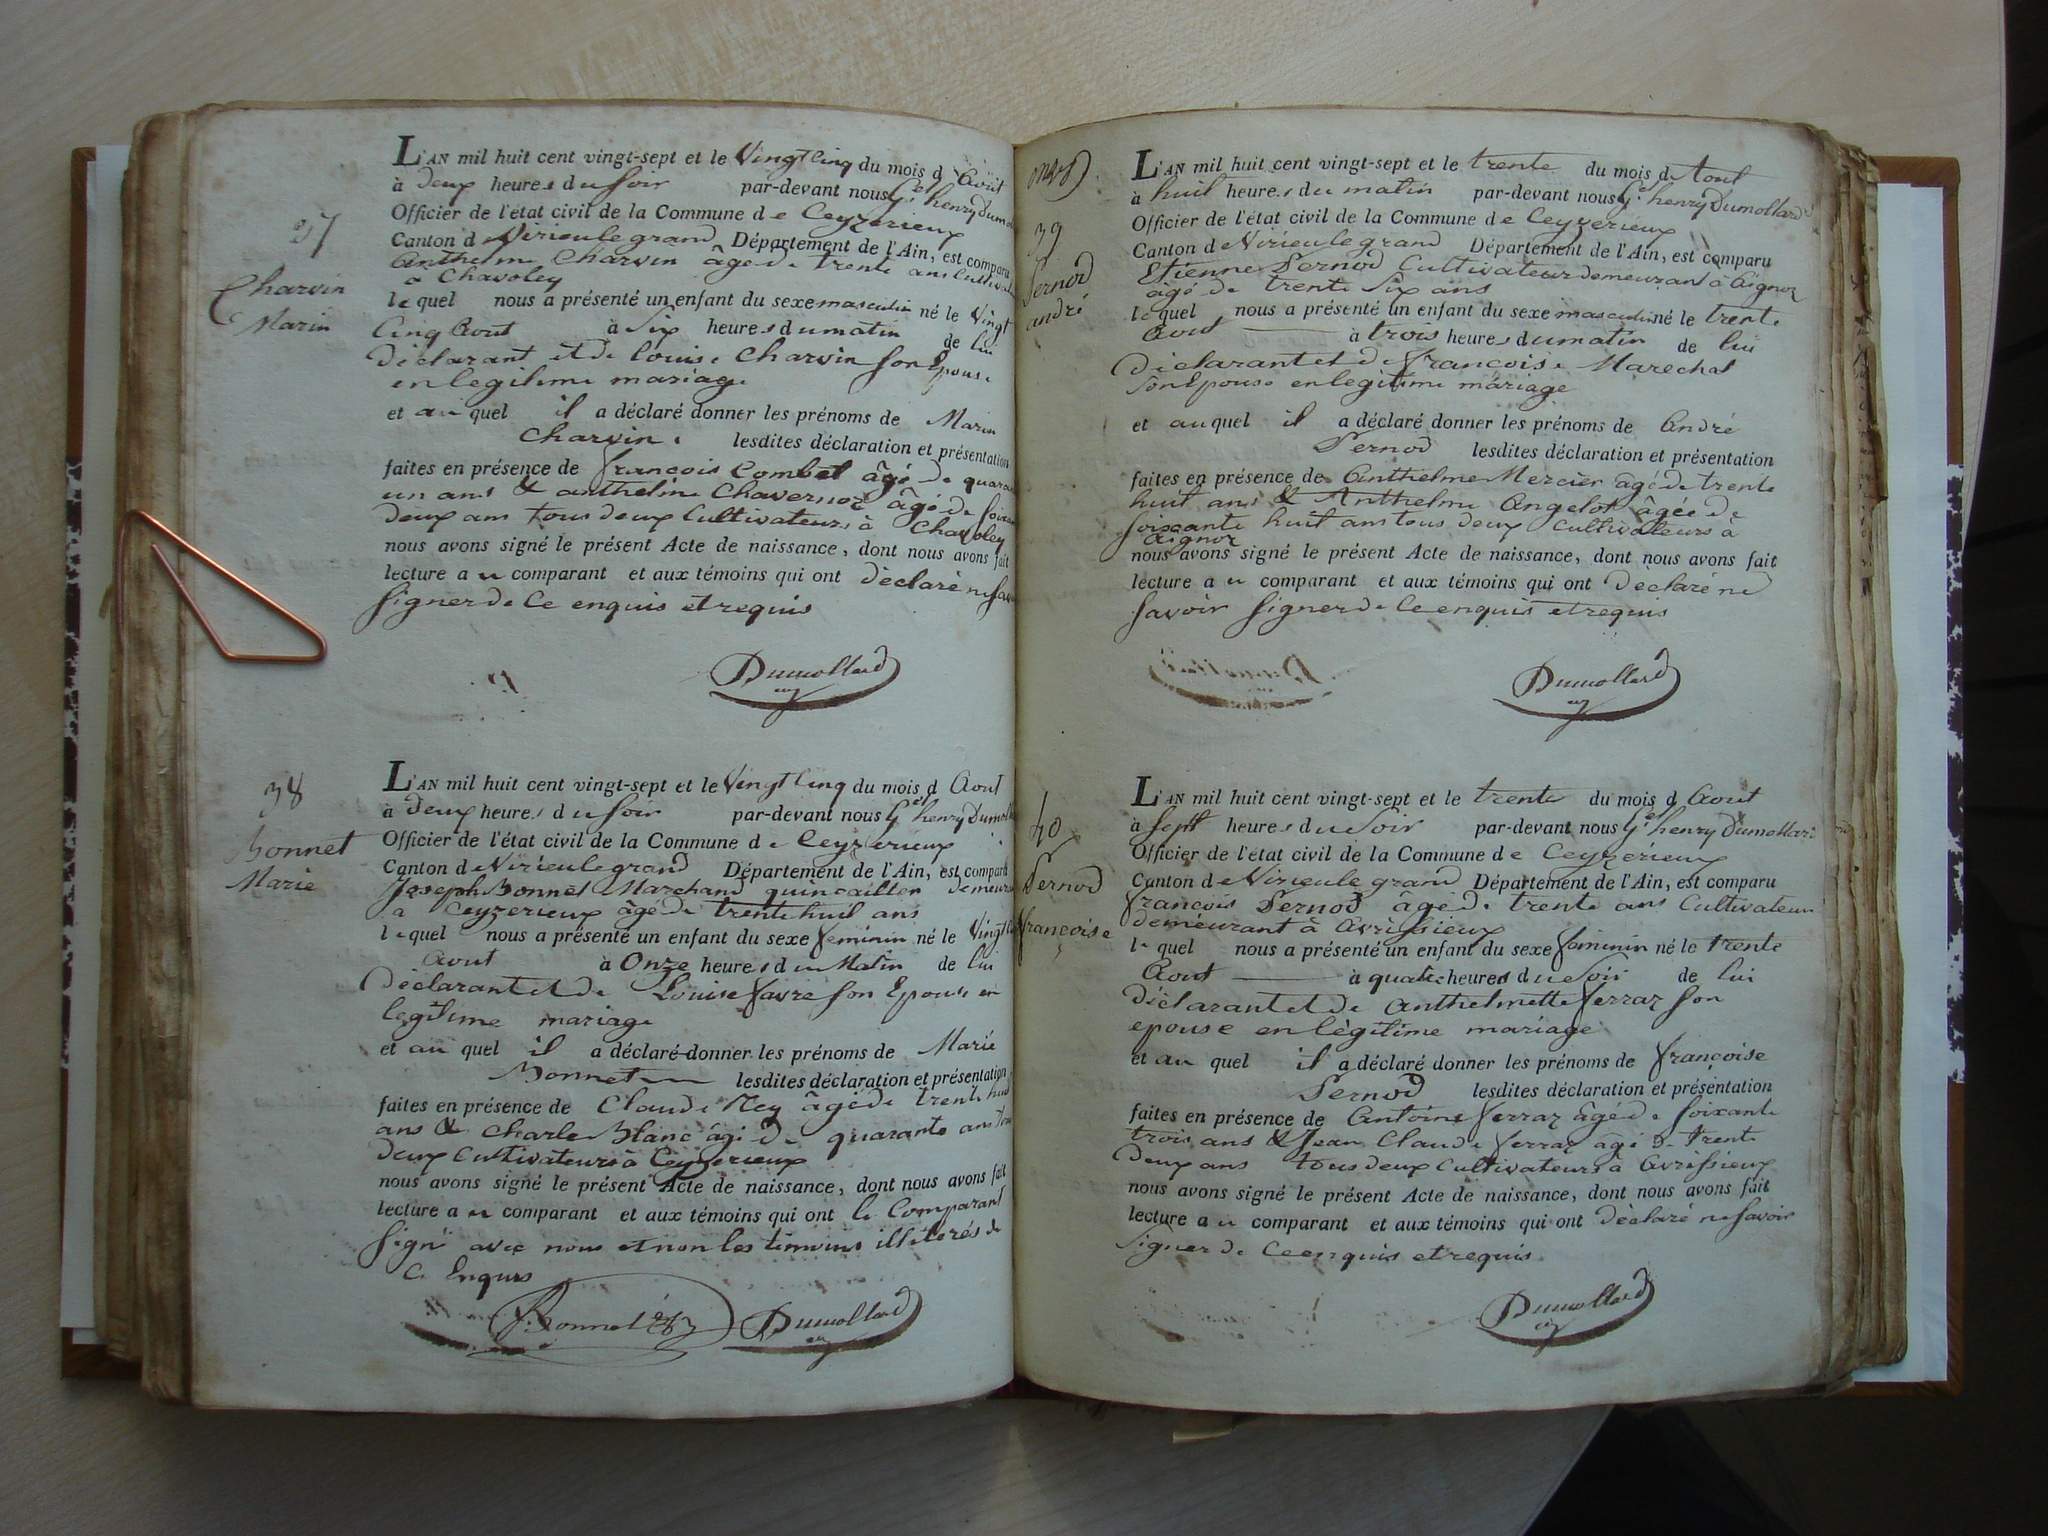 37
Charvin
Marin
L'AN mil huit cent vingt-sept et le Vingt Cinq du mois d Août
à deux heures du Soir par-devant nous henry Dumo
Officier de l'état civil de la Commune de Ceyzerieux
Canton d Virieulegrand Département de l'Ain, est comparu
Anthelme Charvin âgé de trente ans
à Chavoley
lequel nous a présenté un enfant du sexe masculin né le Vingt
Cinq Aout à Six heures du matin de lui
Déclarant et de Louise Charvin Son Epouse
en legitime mariage
et au quel il a déclaré donner les prénoms de Marin
Charvin . lesdites déclaration et présentation
faites en présence de françois Combet âgé de quaran
un ans & anthelme Chavernoz âgé de Soixan
deux ans tous deux Cultivateurs à Chavoley
nous avons signé le présent Acte de naissance, dont nous avons fait
lecture a u comparant et aux témoins qui ont déclaré ne Sav
Signer de Ce enquis et requis
Dumollard
38
Bonnet
Marie
L'AN mil huit cent vingt-sept et le Vingt Cinq du mois d Aout
à deux heures du Soir par-devant nous henry Dumoll
Officier de l'état civil de la Commune de Ceyzerieux
Canton de Virieulegrand Département de l'Ain, est comparu
Joseph Bonnet Marchand quincailler demeuran
a Ceyzerieux âgé de trente huit ans
lequel nous a présenté un enfant du sexe feminin né le Vingt
Aout à Onze heures du Matin de lui
Déclarant et de Louise favre Son Epouse en
legitime mariage
et au quel il a déclaré donner les prénoms de Marie
Bonnet lesdites déclaration et présentation
faites en présence de Claude Rey âgé de trente huit
ans & Charle Blanc âgé de quarante ans Tous
deux Cultivateurs à Ceyzerieux
nous avons signé le présent Acte de naissance, dont nous avons fait
lecture a u comparant et aux témoins qui ont le Comparant
Signé avec nous et non les temoins illiterés de
Ce Enquis
J. Bonnet Dumollard
39
Pernod
andré
L'AN mil huit cent vingt-sept et le trente du mois d Aout
à huit heures du matin par-devant nous henry Dumollard
Officier de l'état civil de la Commune de Ceyzerieux
Canton de Virieulegrand Département de l'Ain, est comparu
Etienne Pernod Cultivateur demeurant à Aignoz
âgé de trente Six ans
lequel nous a présenté un enfant du sexe masculin né le trente
Aout à trois heures du matin de lui
Déclarant et de françoise Marechal
Son Epouse en legitime mariage
et au quel il a déclaré donner les prénoms de André
Pernod lesdites déclaration et présentation
faites en présence de Anthelme Mercier âgé de trente
huit ans & Anthelme Angelot âgée de
soixante huit ans tous deux Cultivateurs à
Aignoz
nous avons signé le présent Acte de naissance, dont nous avons fait
lecture a u comparant et aux témoins qui ont déclaré ne
Savoir Signer de Ce enquis et requis
Dumollard
40
Pernod
françoise
L'AN mil huit cent vingt-sept et le trente du mois d Aout
à Sept heures du Soir par-devant nous henry Dumollard
Officier de l'état civil de la Commune de Ceyzérieux
Canton d Virieule grand Département de l'Ain, est comparu
françois Pernod âgé de trente ans Cultivateur
demeurant à Avrissieux
le quel nous a présenté un enfant du sexe féminin né le trente
Aout à quatre heures du Soir de lui
Déclarant et de Anthelmette ferraz Son
epouse en légitime mariage
et au quel il a déclaré donner les prénoms de françoise
Pernod lesdites déclaration et présentation
faites en présence de Antoine ferraz âgé de Soixante
trois ans & Jean Claude ferraz âgé de trente
Deux ans tous deux Cultivateurs à Avrissieux
nous avons signé le présent Acte de naissance, dont nous avons fait
lecture a u comparant et aux témoins qui ont déclaré ne Savoir
Signer de Ce enquis et requis
Dumollard